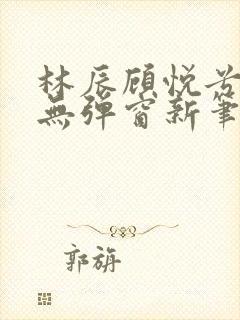 林辰顾悦兮
無弹窗新筆
郭旃